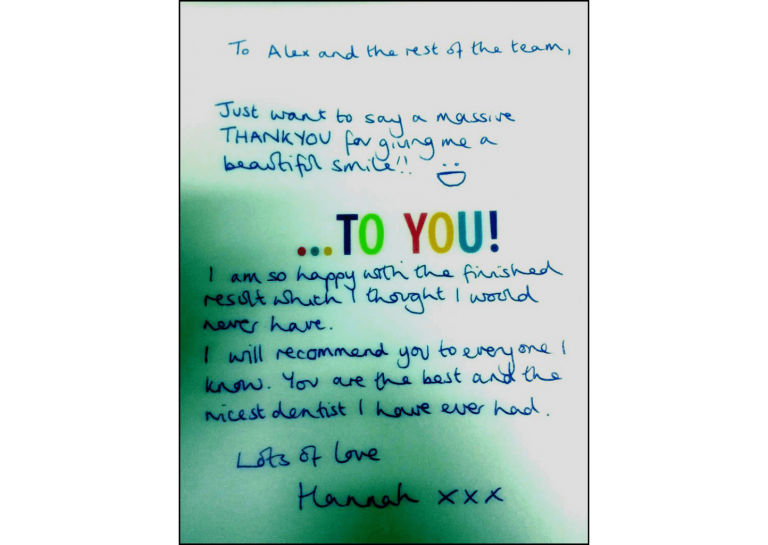 To Alex and the rest of the team,
Just want to say a massive
THANKYOU for giving me a
beautiful smile!!
...TO YOU!
I am so happy with the finished
result which I thought I would
never have.
I will recommend you to everyone I
know. You are the best and the
nicest dentist I have ever had.
Lots of love
Hannah xxx